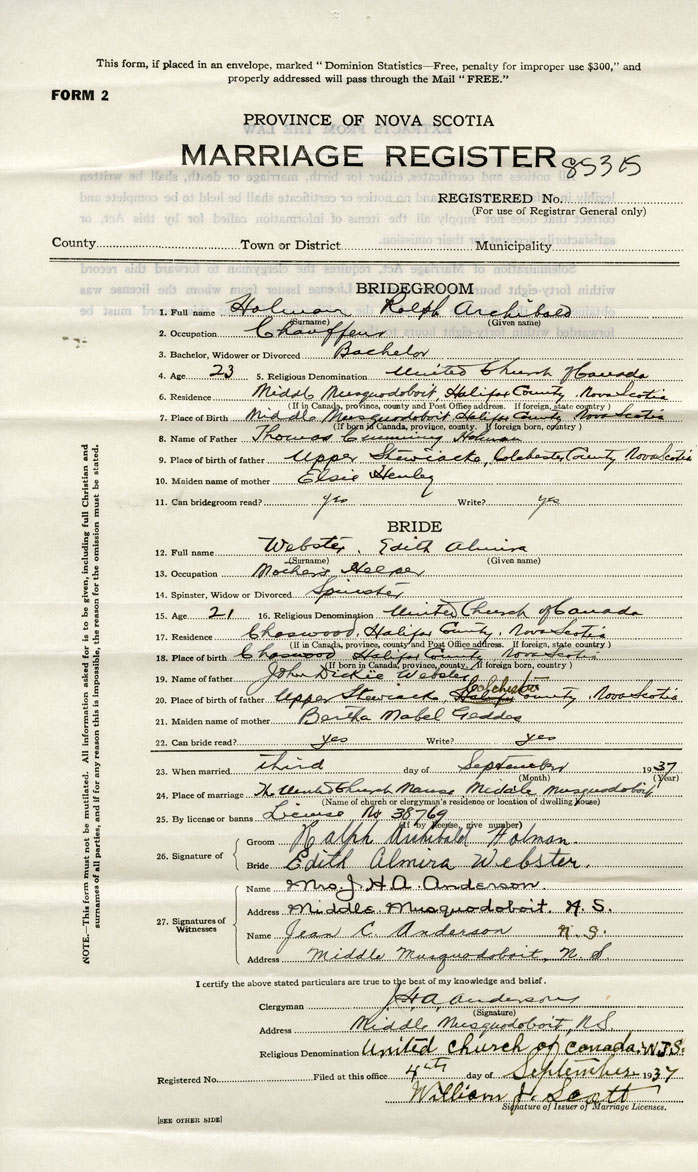 This form, if placed in an envelope, marked "Dominion Statistics—Free, penalty for improper use $300," and
properly addressed will pass through the Mail "FREE."
FORM 2
PROVINCE OF NOVA SCOTIA
MARRIAGE REGISTER 85315
REGISTERED No.
(For use of Registrar General only)
County Town or District Municipality
BRIDEGROOM
1. Full name Holman Ralph Archibald
(Surname) (Given name)
2. Occupation Chauffeur
3. Bachelor, Widower or Divorced Bachelor
4. Age 23 5. Religious Denomination United Church of Canada
6. Residence Middle Musquodoboit, Halifax County, Nova Scotia
(If in Canada, province, county and Post Office address. If foreign, state country)
7. Place of Birth Middle Musquodoboit Halifax County Nova Scotia
(If born in Canada, province, county. If foreign born, country)
8. Name of Father Thomas Cumming Holman
9. Place of birth of father Upper Stewiacke, Colchester County, Nova Scotia
10. Maiden name of mother Elsie Henley
11. Can bridegroom read? yes Write? yes
BRIDE
12. Full name Webster, Edith Almira
(Surname) (Given name)
13. Occupation Mother's Helper
14. Spinster, Widow or Divorced Spinster
15. Age 21 16. Religious Denomination United Church of Canada
17. Residence Chaswood, Halifax County, Nova Scotia
(If in Canada, province, county and Post Office address. If foreign, state country)
18. Place of birth Chaswood Halifax County Nova Scotia
(If born in Canada, province, county. If foreign born, country)
19. Name of father John Dickie Webster
20. Place of birth of father Upper Stewiack, Colchester County, Nova Scotia
21. Maiden name of mother Bertha Mabel Geddes
22. Can bride read? yes Write? yes
23. When married third day of September 1937
(Month) (Year)
24. Place of marriage The United Church Manse Middle Musquodoboit
(Name of church or clergyman's residence or location of dwelling house)
25. By license or banns License No 38769
(If by license, give number)
26. Signature of
Groom Ralph Archibald Holman.
Bride Edith Almira Webster.
27. Signatures of Witnesses
Name Mrs. J. H. A. Anderson
Address Middle Musquodoboit, N.S.
Name Jean C. Anderson N.S.
Address Middle Musquodoboit, N.S.
I certify the above stated particulars are true to the best of my knowledge and belief.
Clergyman J. H. A. Anderson
(Signature)
Address Middle Musquodoboit, N.S.
Religious Denomination United church of Canada. W.J.S.
Registered No. Filed at this office 4th day of September 1937
William J. Scott
Signature of Issuer of Marriage Licenses.
[SEE OTHER SIDE]
NOTE.—This form must not be mutilated. All information asked for is to be given, including full Christian and
surnames of all parties, and if for any reason this is impossible, the reason for the omission must be stated.